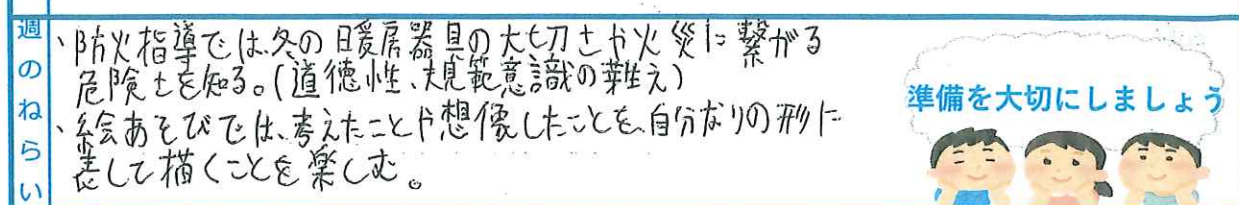 週のねらい
、防火指導では冬の暖房器具の大切さや火災に繋がる
危険さを知る。(道徳性、規範意識の芽生え)
、絵あそびでは、考えたことや想像したことを、自分なりの形に
表して描くことを楽しむ。
準備を大切にしましょう